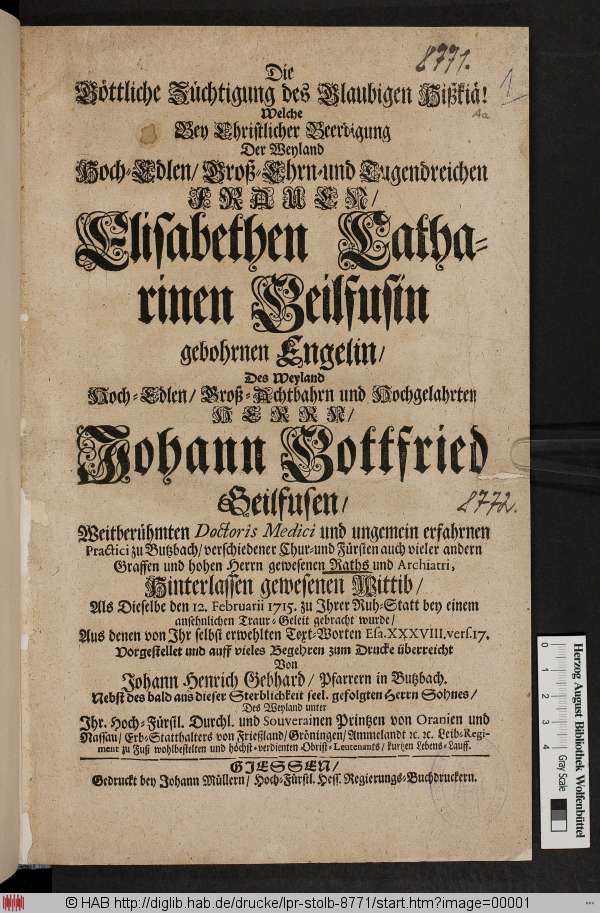 8771.
1
Die
Göttliche Züchtigung des Glaubigen Hißkiä!
Aa
Welche
Bey Christlicher Beerdigung
Der Weyland
Hoch-Edlen/ Groß-Ehrn-und Tugendreichen
FRAUEN/
Elisabethen Catha-
rinen Geilfusin
gebohrnen Engelin/
Des Weyland
Hoch-Edlen/ Groß-Achtbahrn und Hochgelahrten
HERRN/
Johann Gottfried
Geilfusen/
8772.
Weitberühmten Doctoris Medici und ungemein erfahrnen
Practici zu Butzbach/ verschiedener Chur-und Fürsten auch vieler andern
Graffen und hohen Herrn gewesenen Raths und Archiatri,
Hinterlassen gewesenen Wittib/
Als Dieselbe den 12. Februarii 1715. zu Ihrer Ruh-Statt bey einem
ansehnlichen Traur-Geleit gebracht wurde/
Aus denen von Ihr selbst erwehlten Text-Worten Esa. XXXVIII. vers. 17.
Vorgestellet und auff vieles Begehren zum Drucke überreicht
Von
Johann Henrich Gebhard/ Pfarrern in Butzbach.
Nebst des bald aus dieser Sterblichkeit seel. gefolgten Herrn Sohnes/
Des Weyland unter
Ihr. Hoch-Fürstl. Durchl. und Souverainen Printzen von Oranien und
Nassau/ Erb-Statthalters von Frießland/ Gröningen/ Ammelandt ꝛc. ꝛc. Leib-Regi-
ment zu Fuß wohlbestelten und höchst-verdienten Obrist-Leutenants/ kurtzen Lebens-Lauff.
GIESSEN/
Gedruckt bey Johann Müllern/ Hoch-Fürstl. Hess. Regierungs-Buchdruckern.
0 1 2 3 4 5 6 7 8
Gray Scale
Herzog August Bibliothek Wolfenbüttel
© HAB http://diglib.hab.de/drucke/lpr-stolb-8771/start.htm?image=00001